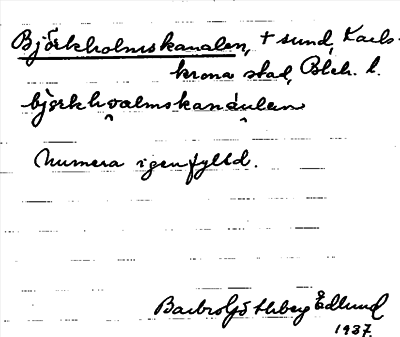 Björkholmskanalen, + sund, Karls-
krona stad, Blek. l.
björkhoalmskanaulen
Numera igenfylld.
Barbro Götlberg Edlund
1937.